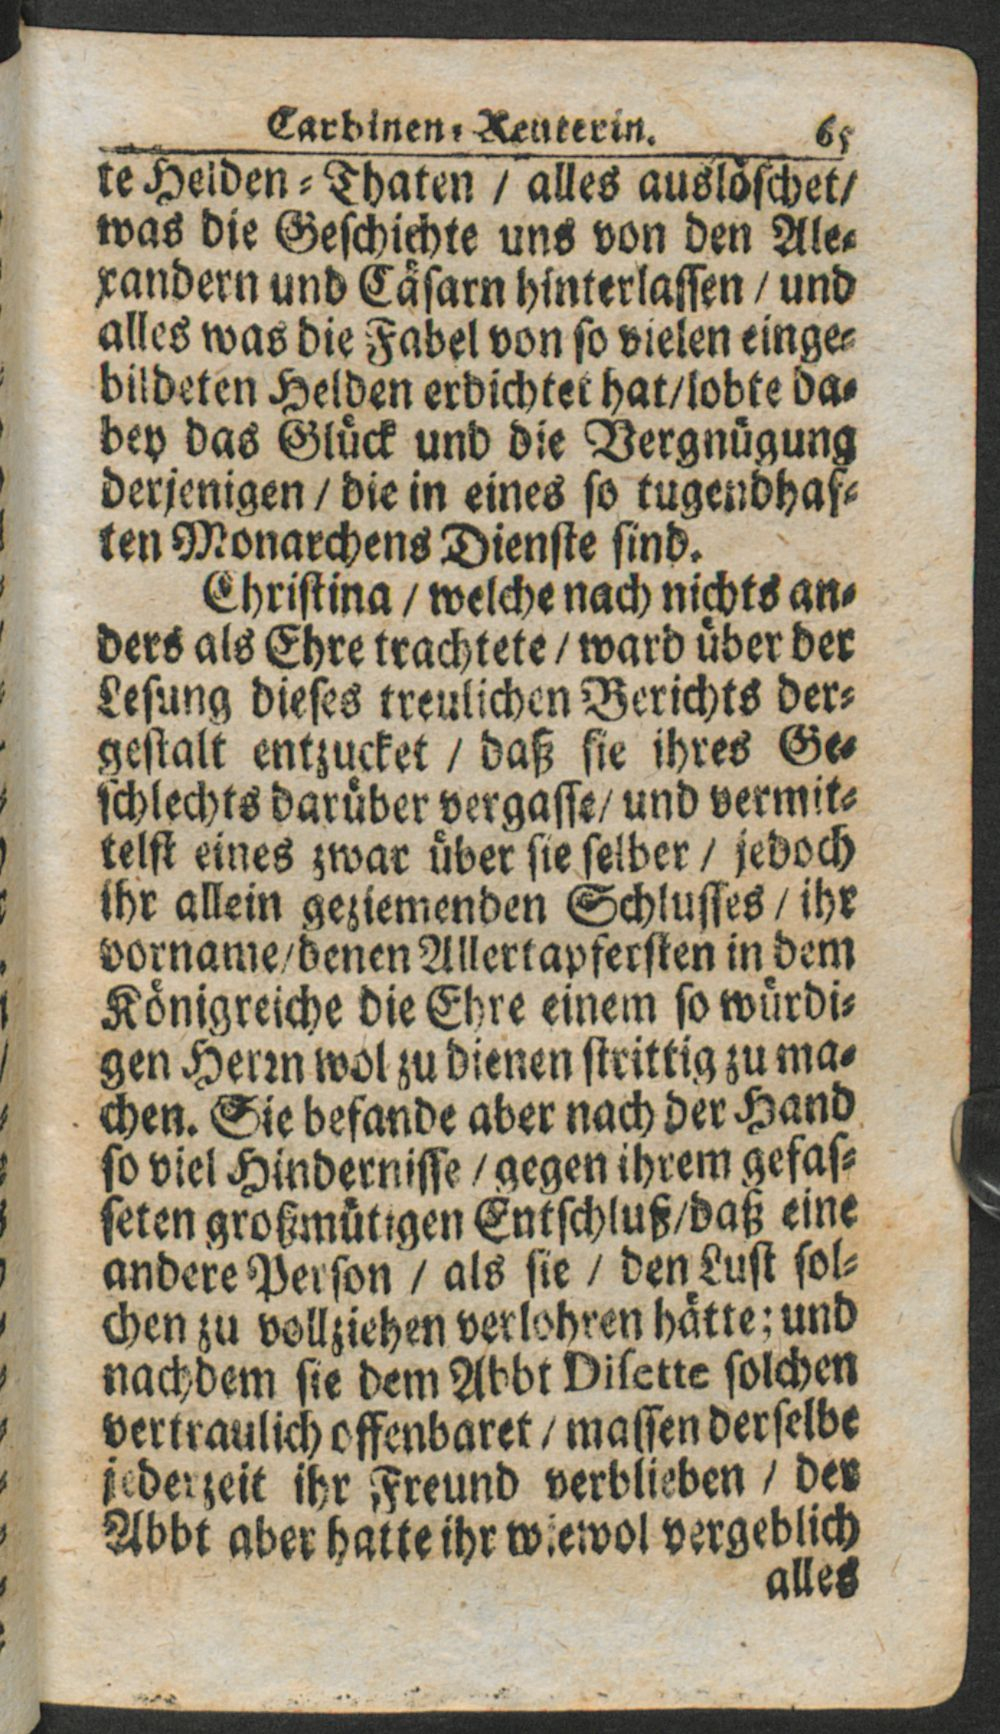 Carbinen-Reuterin. 65
te Helden-Thaten / alles auslöschet/
was die Geschichte uns von den Ale-
xandern und Cäsarn hinterlassen / und
alles was die Fabel von so vielen einge-
bildeten Helden erdichtet hat/lobte da-
bey das Glück und die Vergnügung
derjenigen / die in eines so tugendhaf-
ten Monarchens Dienste sind.
Christina / welche nach nichts an-
ders als Ehre trachtete / ward über der
Lesung dieses treulichen Berichts der-
gestalt entzucket / daß sie ihres Ge-
schlechts darüber vergasse/ und vermit-
telst eines zwar über sie selber / jedoch
ihr allein geziemenden Schlusses / ihr
vorname/denen Allertapfersten in dem
Königreiche die Ehre einem so würdi-
gen Herrn wol zu dienen strittig zu ma-
chen. Sie befande aber nach der Hand
so viel Hindernisse / gegen ihrem gefas-
seten großmütigen Entschluß/daß eine
andere Person / als sie / den Lust sol-
chen zu vollziehen verlohren hätte; und
nachdem sie dem Abbt Disette solchen
vertraulich offenbaret / massen derselbe
jederzeit ihr Freund verblieben / der
Abbt aber hatte ihr wiewol vergeblich
alles